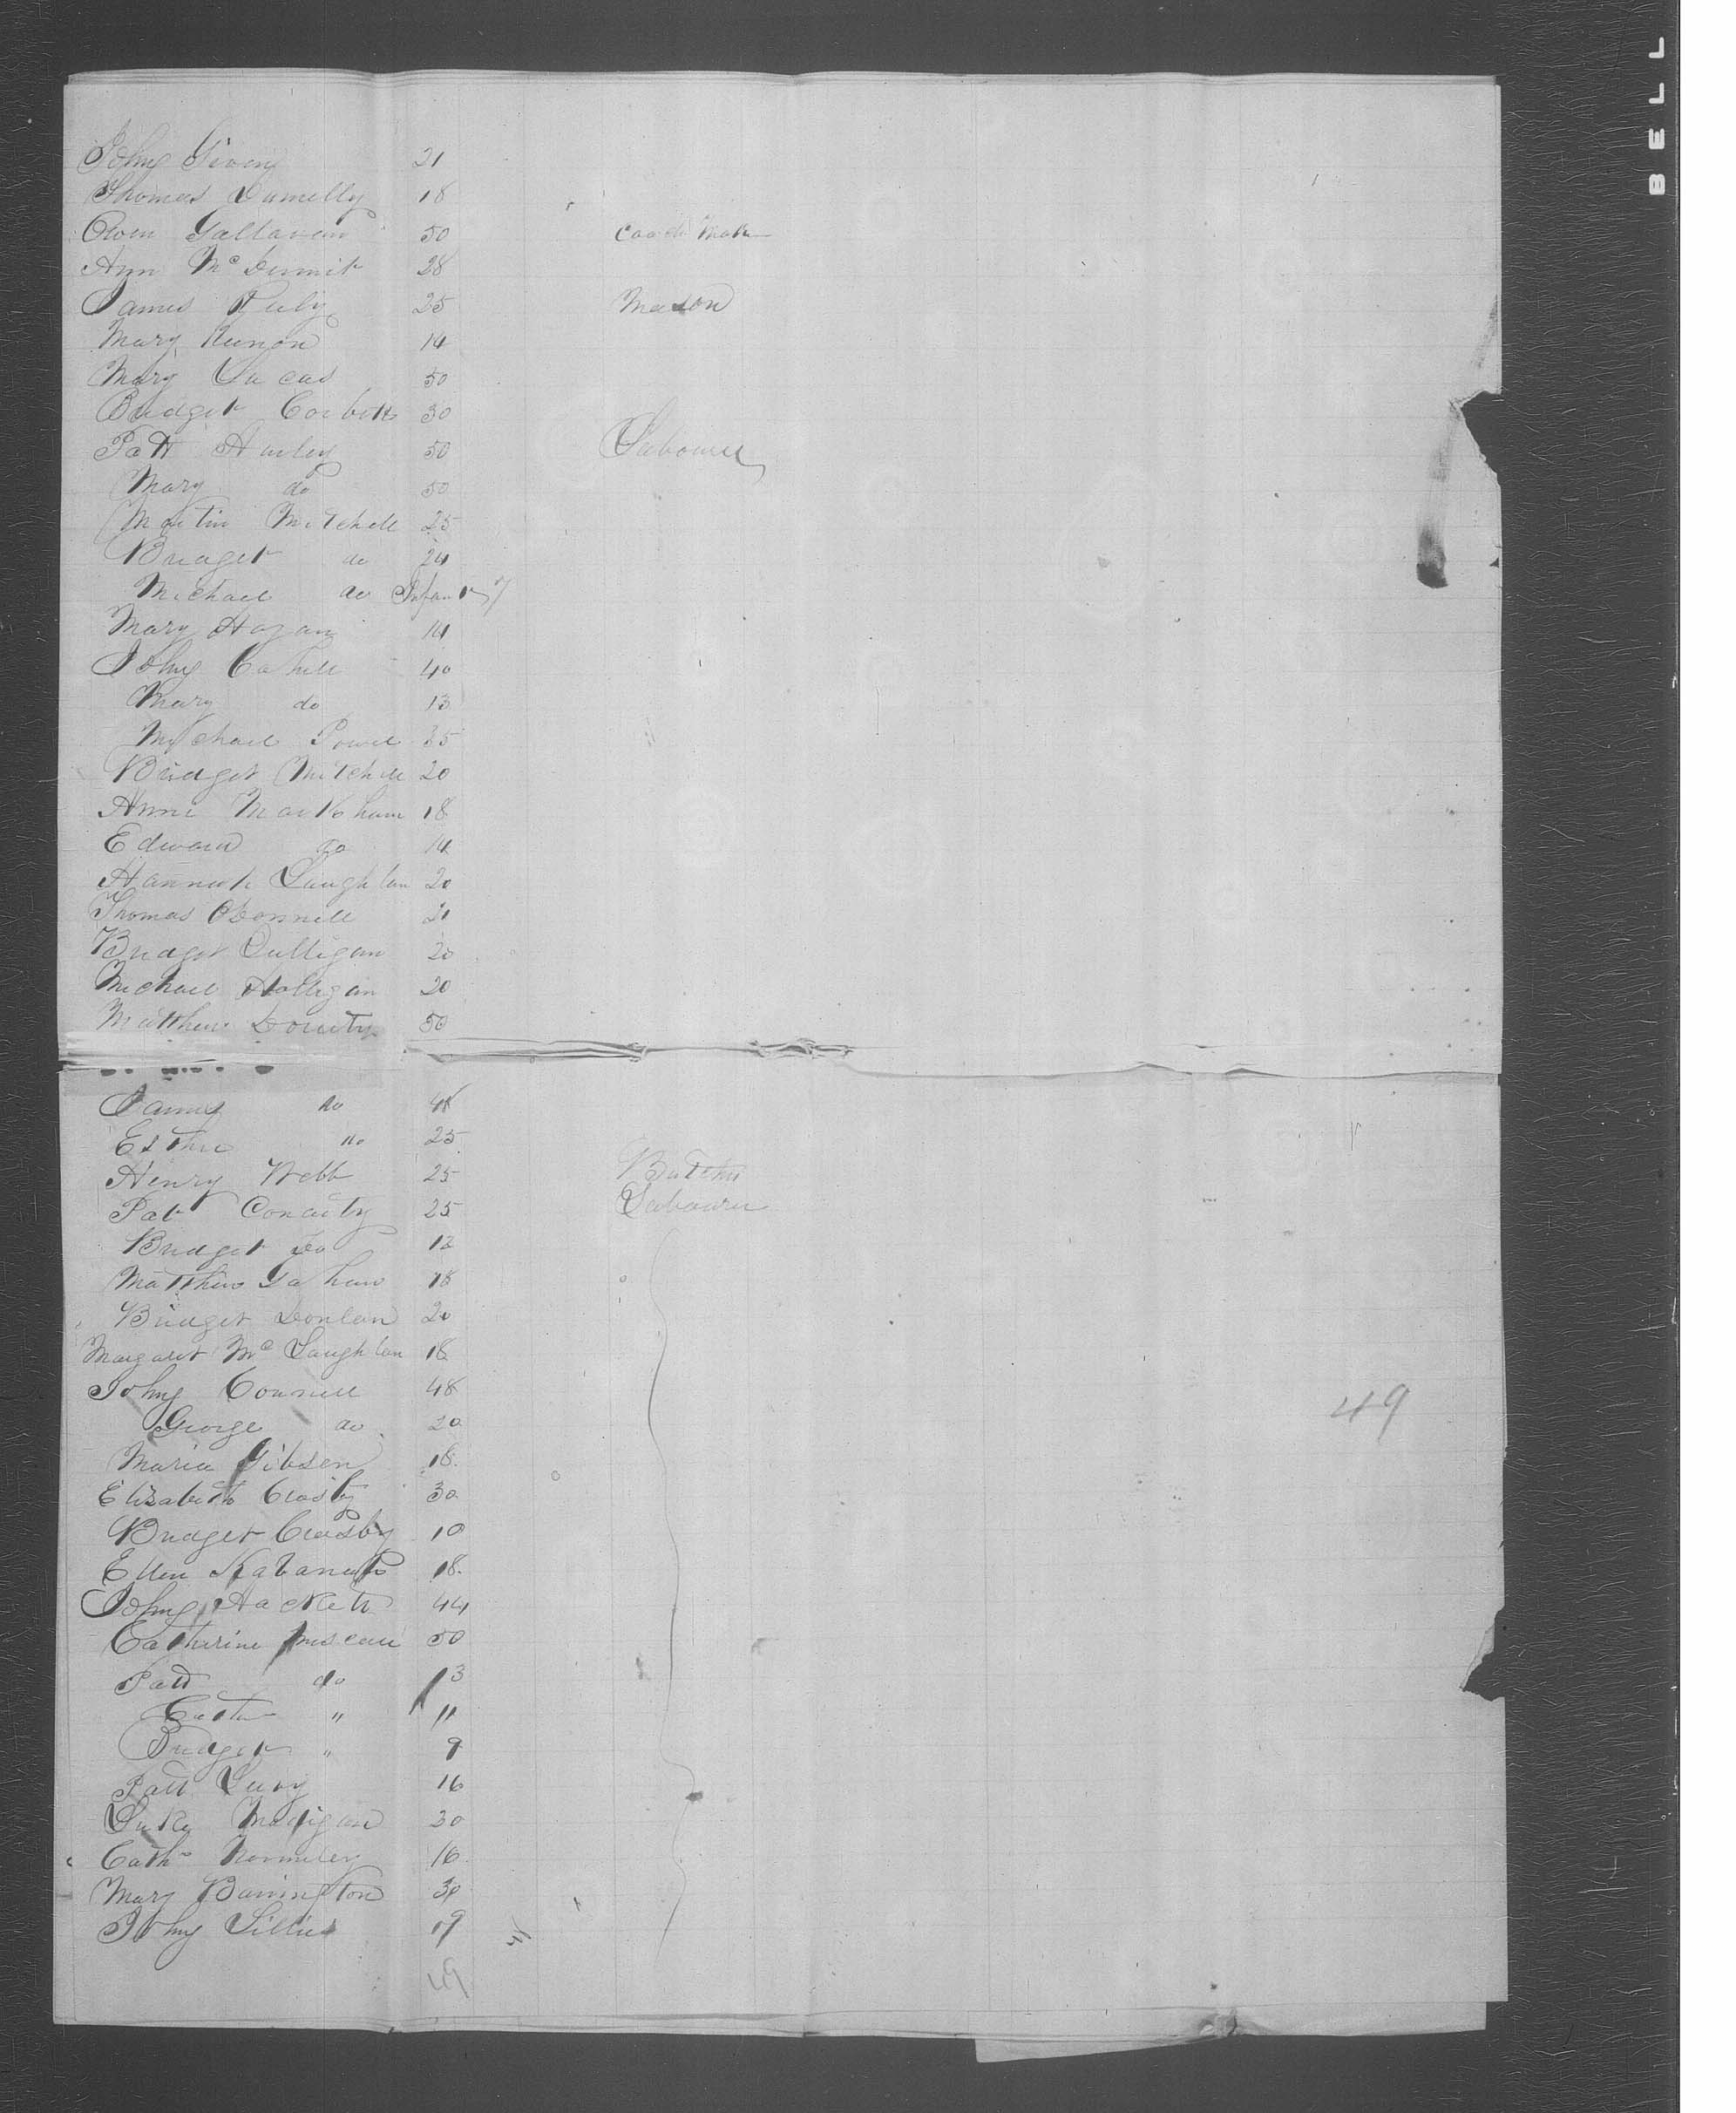 John Givons 21
Thomas Dunnelly 18
Owen Gallavan 50 Coach Maker
Ann McDermit 28
James 25 Mason
Mary 14
Mary Lucas 50
Bridget Corbett 30
Patt Hurley 50 Labourer
Mary do 50
Martin Mitchell 25
Bridget do 24
Michael do Infant
Mary Hogan 14
John Cahill 40
Mary do 13
Michael Power 35
Bridget Mitchell 20
Anne Markham 18
Edward do 14
Hannah Laughlan 20
Thomas ODonnell 21
Bridget Culligan 20
Michael Halligan 20
Matthew Dourty 50
James do
Esther do 25
Henry Webb 25 Butcher
Pat Conaity 25 Labourer
Bridget Do 12
Matthew Gahan 18
Bridget Donlan 20
Margaret McLaughlan 18
John Connell 48
George do 20
Maria Gibson 18
Elizabeth Crosby 30
Bridget Crosby 10
Ellen Kabanaugh 18
John Hackett 44
Catherine 50
Patt do 13
Cath " 11
Bridget " 9
Patt Leary 16
Luke Madigan 30
Cath Normiley 16
Mary Barrington 30
John Lillis 19
49
49
BELL